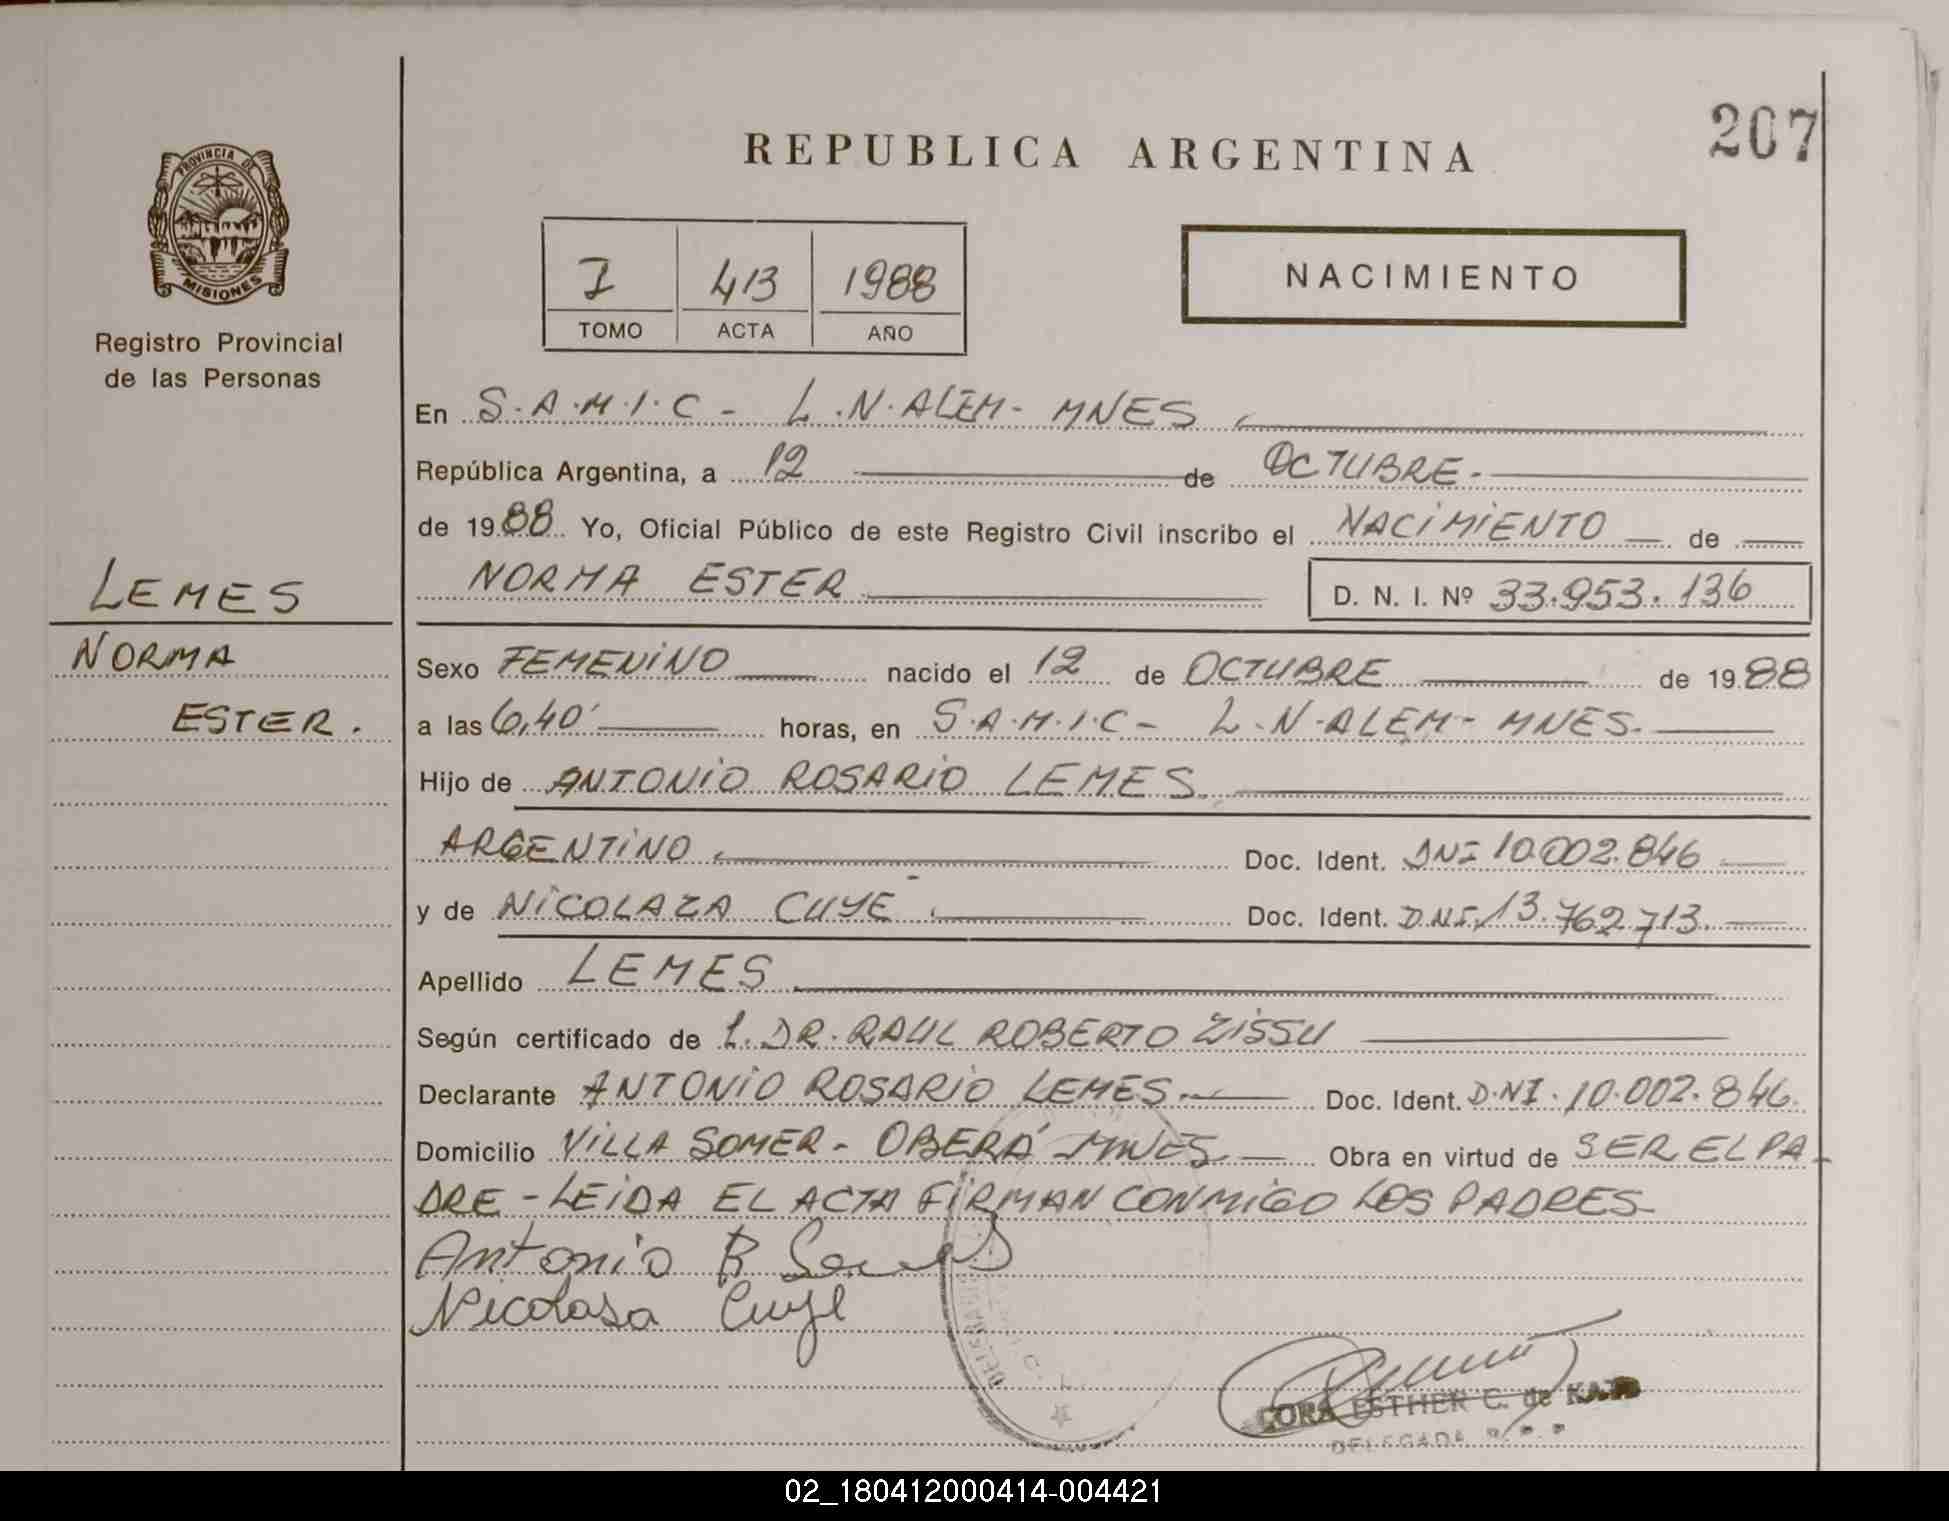 207
REPUBLICA ARGENTINA
PROVINCIA DE
MISIONES
Registro Provincial
de las Personas
I 413 1988
TOMO ACTA AÑO
NACIMIENTO
En S.A.M.I.C - L.N.ALEM- MNES
República Argentina, a 12 de OCTUBRE.
de 1988 Yo, Oficial Público de este Registro Civil inscribo el NACIMIENTO de
NORMA ESTER D. N. I. Nº 33.953.136
LEMES
NORMA
ESTER.
Sexo FEMENINO nacido el 12 de OCTUBRE de 1988
a las 6,40' horas, en S.A.M.I.C - L.N.ALEM- MNES.
Hijo de ANTONIO ROSARIO LEMES
ARGENTINO Doc. Ident. DNI 10.002.846
y de NICOLAZA CUYE Doc. Ident. D.N.I. 13.762.713.
Apellido LEMES
Según certificado de L. DR. RAUL ROBERTO ZISSU
Declarante ANTONIO ROSARIO LEMES Doc. Ident. D.N.I. 10.002.846.
Domicilio VILLA SOMER - OBERÁ MNES Obra en virtud de SER EL PA-
DRE - LEIDA EL ACTA FIRMAN CONMIGO LOS PADRES
Antonio R Lemes
Nicolasa Cuye
ESTHER C. de
DELEGADA
02_180412000414-004421